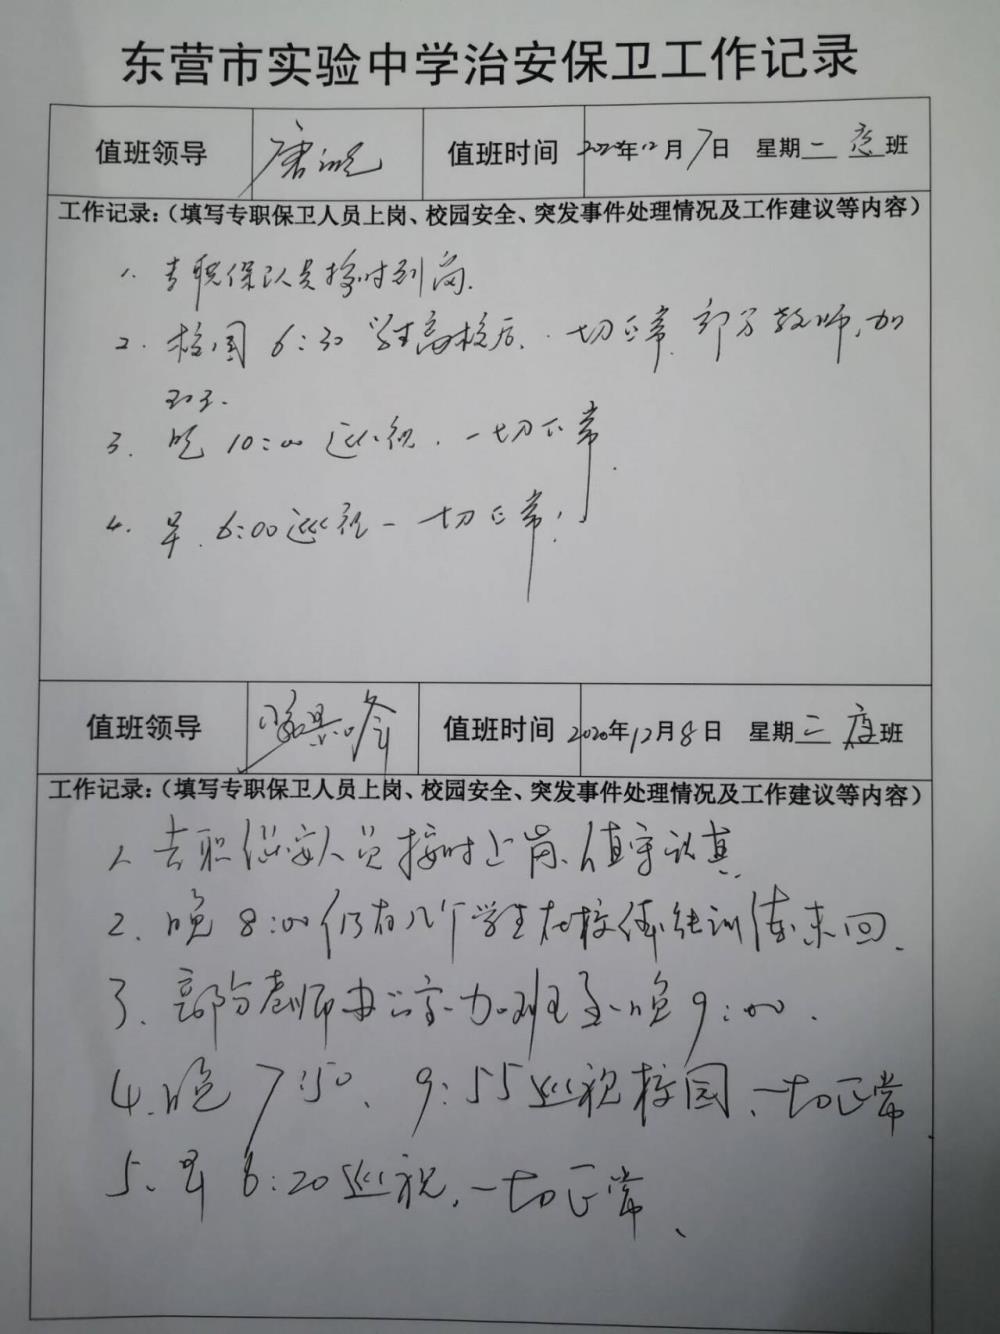 东营市实验中学治安保卫工作记录
值班领导 值班时间 2020年12月7日 星期二 夜班
工作记录：（填写专职保卫人员上岗、校园安全、突发事件处理情况及工作建议等内容）
1. 专职保卫人员按时到岗.
2. 校园 6:30 学生离校后, 一切正常. 部分教师加
班.
3. 晚 10:00 巡视. 一切正常.
4. 早. 6:00 巡视 一切正常.
值班领导 值班时间 2020年12月8日 星期二 夜班
工作记录：（填写专职保卫人员上岗、校园安全、突发事件处理情况及工作建议等内容）
1. 专职保安人员按时上岗、值守认真
2. 晚 8:00 仍有几个学生在校体训练未回.
3. 部分老师办公室加班至晚 9:00.
4. 晚 7:50、9:55 巡视校园、一切正常.
5. 早 6:20 巡视, 一切正常、